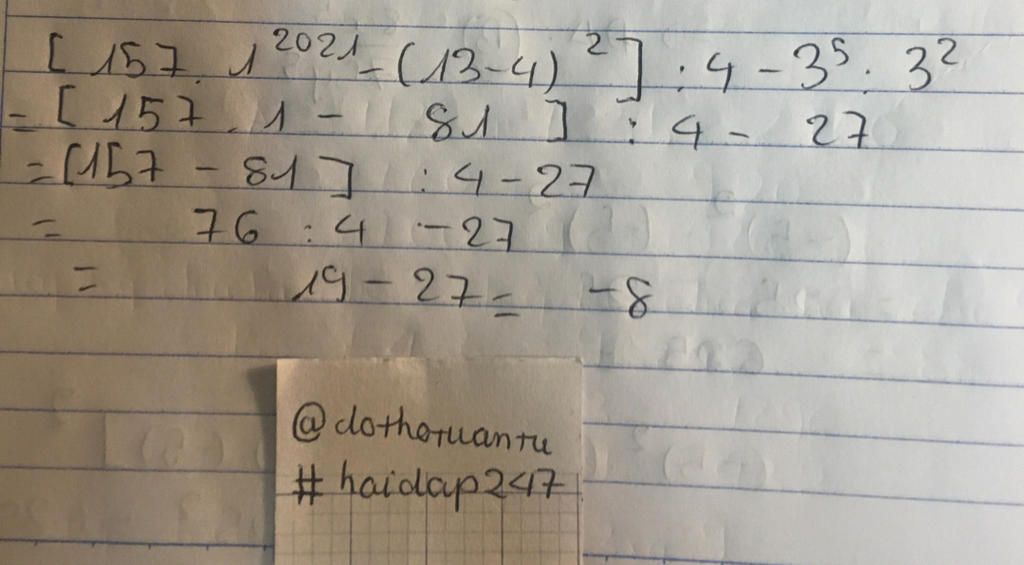 [ 157 . 1^2021 - (13-4)^2 ] : 4 - 3^5 : 3^2
= [ 157 . 1 - 81 ] : 4 - 27
= [157 - 81 ] : 4 - 27
= 76 : 4 - 27
= 19 - 27 = -8
@dothotuantu
# haidap247